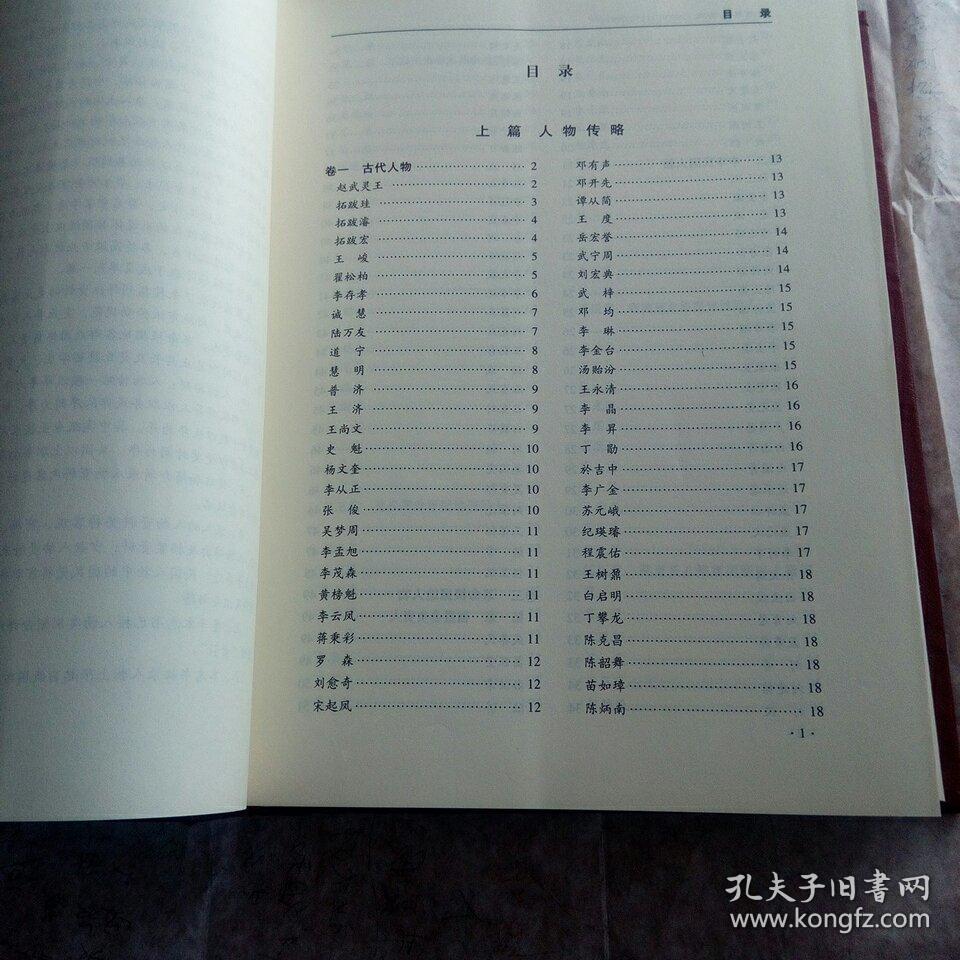 目 录
目 录
上 篇 人 物 传 略
卷一 古代人物 2
赵武灵王 2
拓跋珪 3
拓跋濬 4
拓跋宏 4
王 峻 5
翟松柏 5
李存孝 6
诚 慧 7
陆万友 7
道 宁 8
慧 明 8
普 济 9
王 济 9
王尚文 9
史 魁 10
杨文奎 10
李从正 10
张 俊 10
吴梦周 11
李孟旭 11
李茂森 11
黄榜魁 11
李云凤 11
蒋秉彩 11
罗 森 12
刘愈奇 12
宋起凤 12
邓有声 13
邓开先 13
谭从简 13
王 度 13
岳宏誉 14
武宁周 14
刘宏典 14
武 梓 15
邓 均 15
李 琳 15
李金台 15
汤贻汾 15
王永清 16
李 晶 16
李 昇 16
丁 勋 16
於吉中 17
李广金 17
苏元峨 17
纪瑛璿 17
程震佑 17
王树鼐 18
白启明 18
丁攀龙 18
陈克昌 18
陈韶舞 18
苗如璋 18
陈炳南 18
·1·
孔夫子旧书网
www.kongfz.com